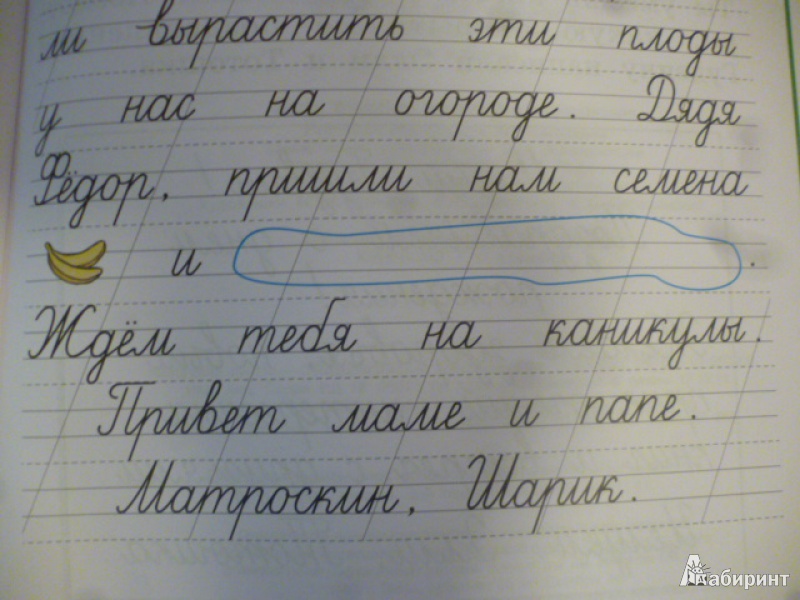 ли вырастить эти плоды
у нас на огороде. Дядя
Фёдор, пришли нам семена
и .
Ждём тебя на каникулы.
Привет маме и папе.
Матроскин, Шарик.
Лабиринт